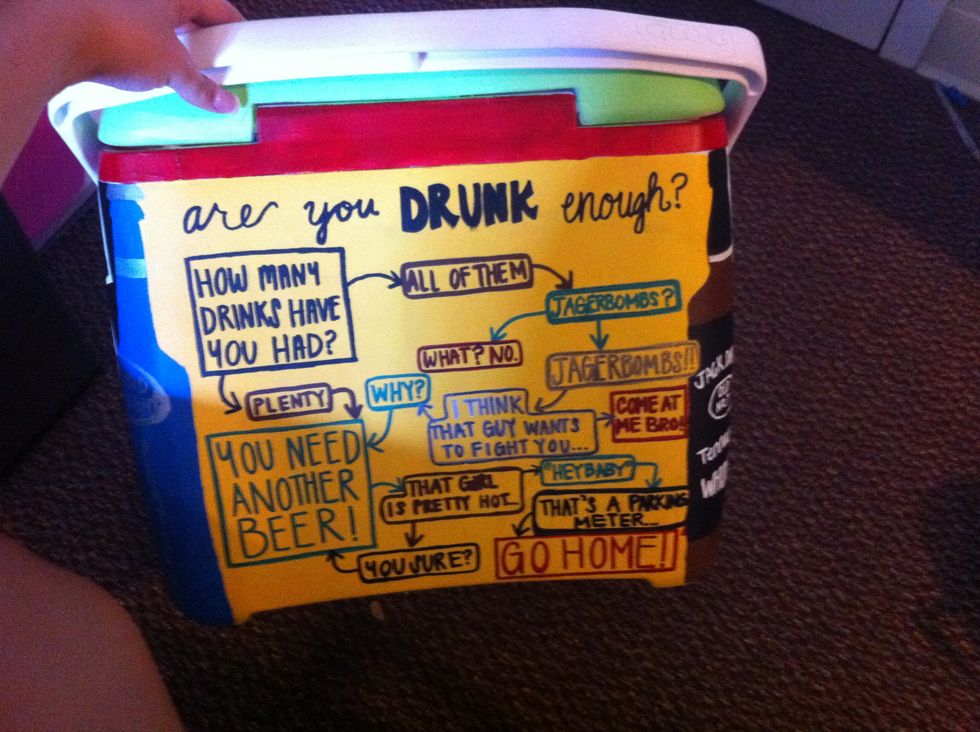 are you DRUNK enough?
HOW MANY
DRINKS HAVE
YOU HAD?
ALL OF THEM
JAGERBOMBS?
WHAT? NO.
JAGERBOMBS!!
PLENTY
WHY?
I THINK
THAT GUY WANTS
TO FIGHT YOU...
COME AT
ME BRO!
YOU NEED
ANOTHER
BEER!
THAT GIRL
IS PRETTY HOT...
"HEY BABY"
THAT'S A PARKING
METER...
YOU SURE?
GO HOME!!
JACK